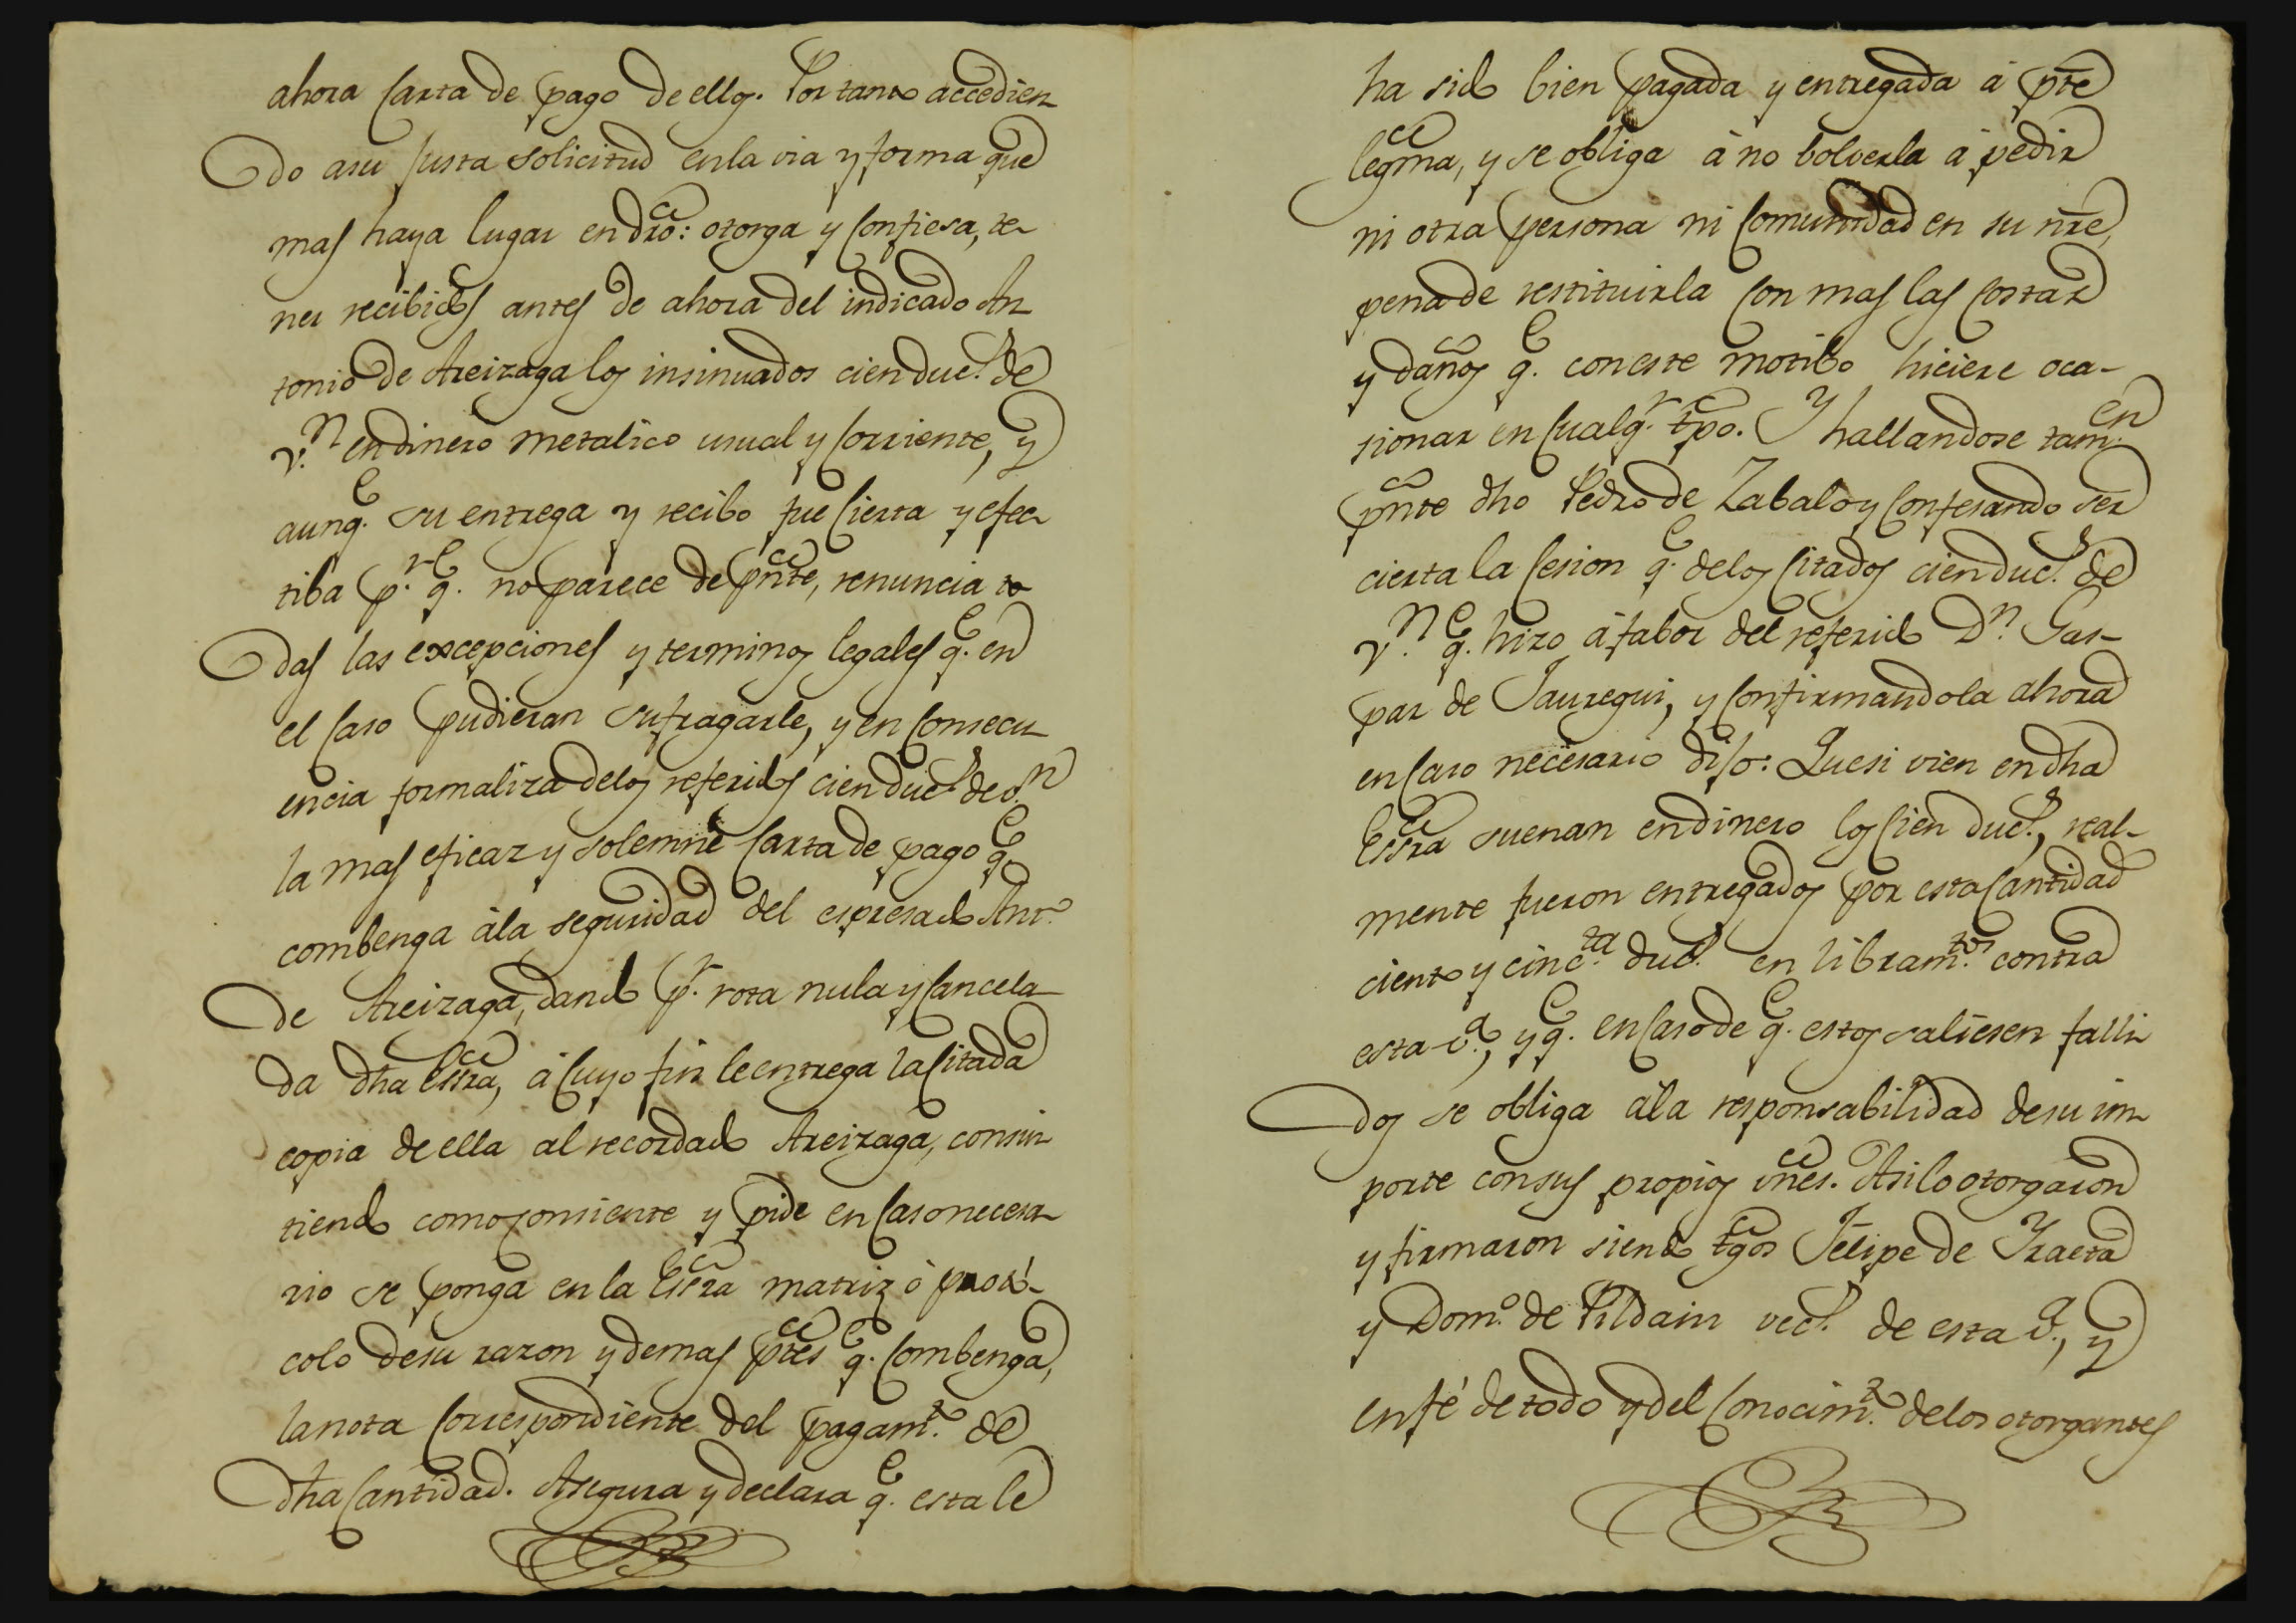 ahora Carta de pago de ellos. Por tanto accedien
do asu Justa solicitud en la via y forma que
mas haya lugar en dro: otorga y Confiesa, te-
ner recibidos antes de ahora del indicado An
tonio de Areizaga los insinuados cien duc.s de
v.n en dinero metalico usual y Corriente, y
aunq.e su entrega y recibo fue Cierta y efec
tiba p.r q.e no parece de pnte, renuncia to
das las excepciones y terminos legales q.e en
el Caso pudieran sufragarle, y en Consecu
encia formaliza delos referidos cien duc.s de v.n
la mas eficaz y solemne Carta de pago q.e
combenga àla seguridad del espresado Ant.o
de Areizaga, dando p.r rota nula y Cancela
da dha Essra, á Cuyo fin le entrega la Citada
copia de ella al recordado Areizaga, consin
tiendo como consiente y pide en Caso necesa
rio se ponga en la Essra matriz ó proto-
colo desu razon y demas ptes q.e Combenga,
la nota Correspondiente del pagam.to de
dha Cantidad. Asegura y declara q.e esta le
ha sido bien pagada y entregada á pte
legma, y se obliga á no bolverla á pedir
ni otra persona ni Comunidad en su nre,
pena de restituirla Con mas las Costas
y daños q.e con este motibo hiciere oca-
sionar en Cualq.r tpo. Y hallandose tam.en
pnte dho Pedro de Zabalo y Confesando ser
cierta la Cesion q.e delos Citados cien duc.s de
v.n q.e hizo á fabor del referido D.n Gas-
par de Jauregui, y Confirmandola ahora
en Caso necesario dijo: Que si vien en dha
Essra suenan en dinero los Cien duc.s, real-
mente fueron entregados por esta Cantidad
ciento y cinc.ta duc.s en libram.tos contra
esta v.a, y q.e en Caso de q.e estos saliesen falli
dos se obliga àla responsabilidad desu im
porte con sus propios vnes. Asi lo otorgaron
y firmaron siendo tgos Felipe de Yraeta
y Dom.o de Pildain vec.s de esta v.a, y
en fé de todo y del Conocim.to delos otorgantes